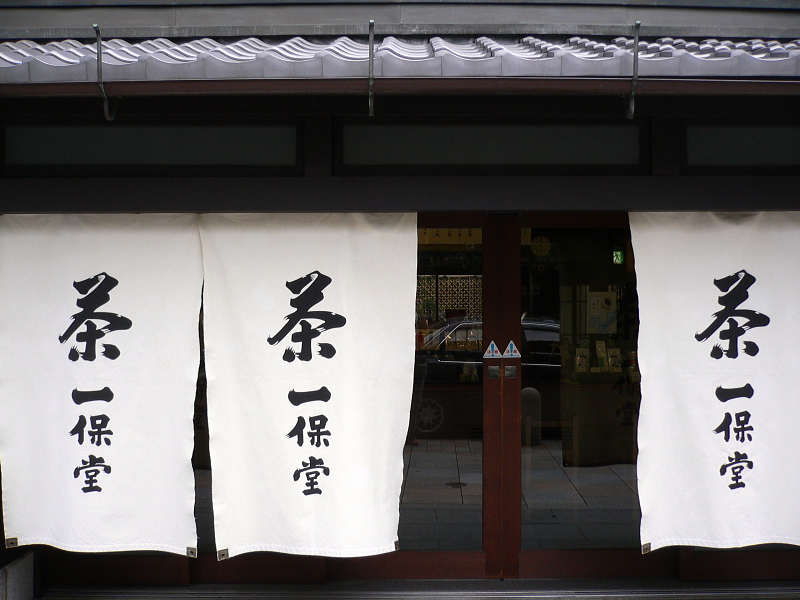 茶
一保堂
茶
一保堂
茶
一保堂